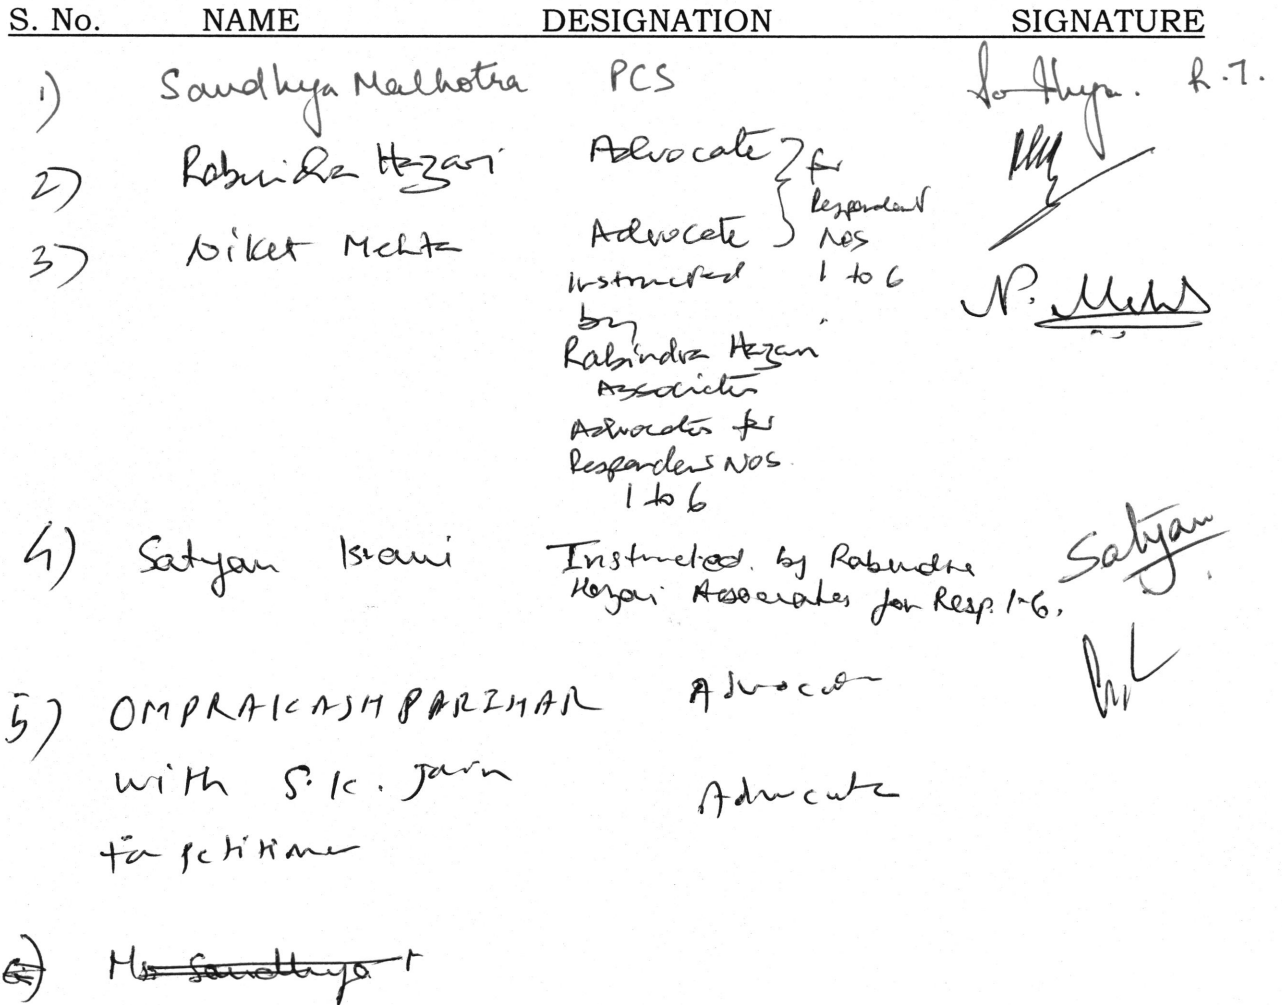 S. No. NAME DESIGNATION SIGNATURE
1) Sandhya Malhotra PCS Sandhya. R.T.
2) Rabindra Hazari Advocate } for
Respondent
3) Niket Mehta Advocate } Nos
instructed 1 to 6 N. Mehta
by
Rabindra Hazari
Associates
Advocates for
Respondent Nos.
1 to 6
4) Satyan Israni Instructed by Rabindra Satyan
Hazari Associates for Resp. 1-6.
5) OMPRAKASH PARIHAR Advocate
with S.K. Jain Advocate
for petitioner
6) Ms Sandhya